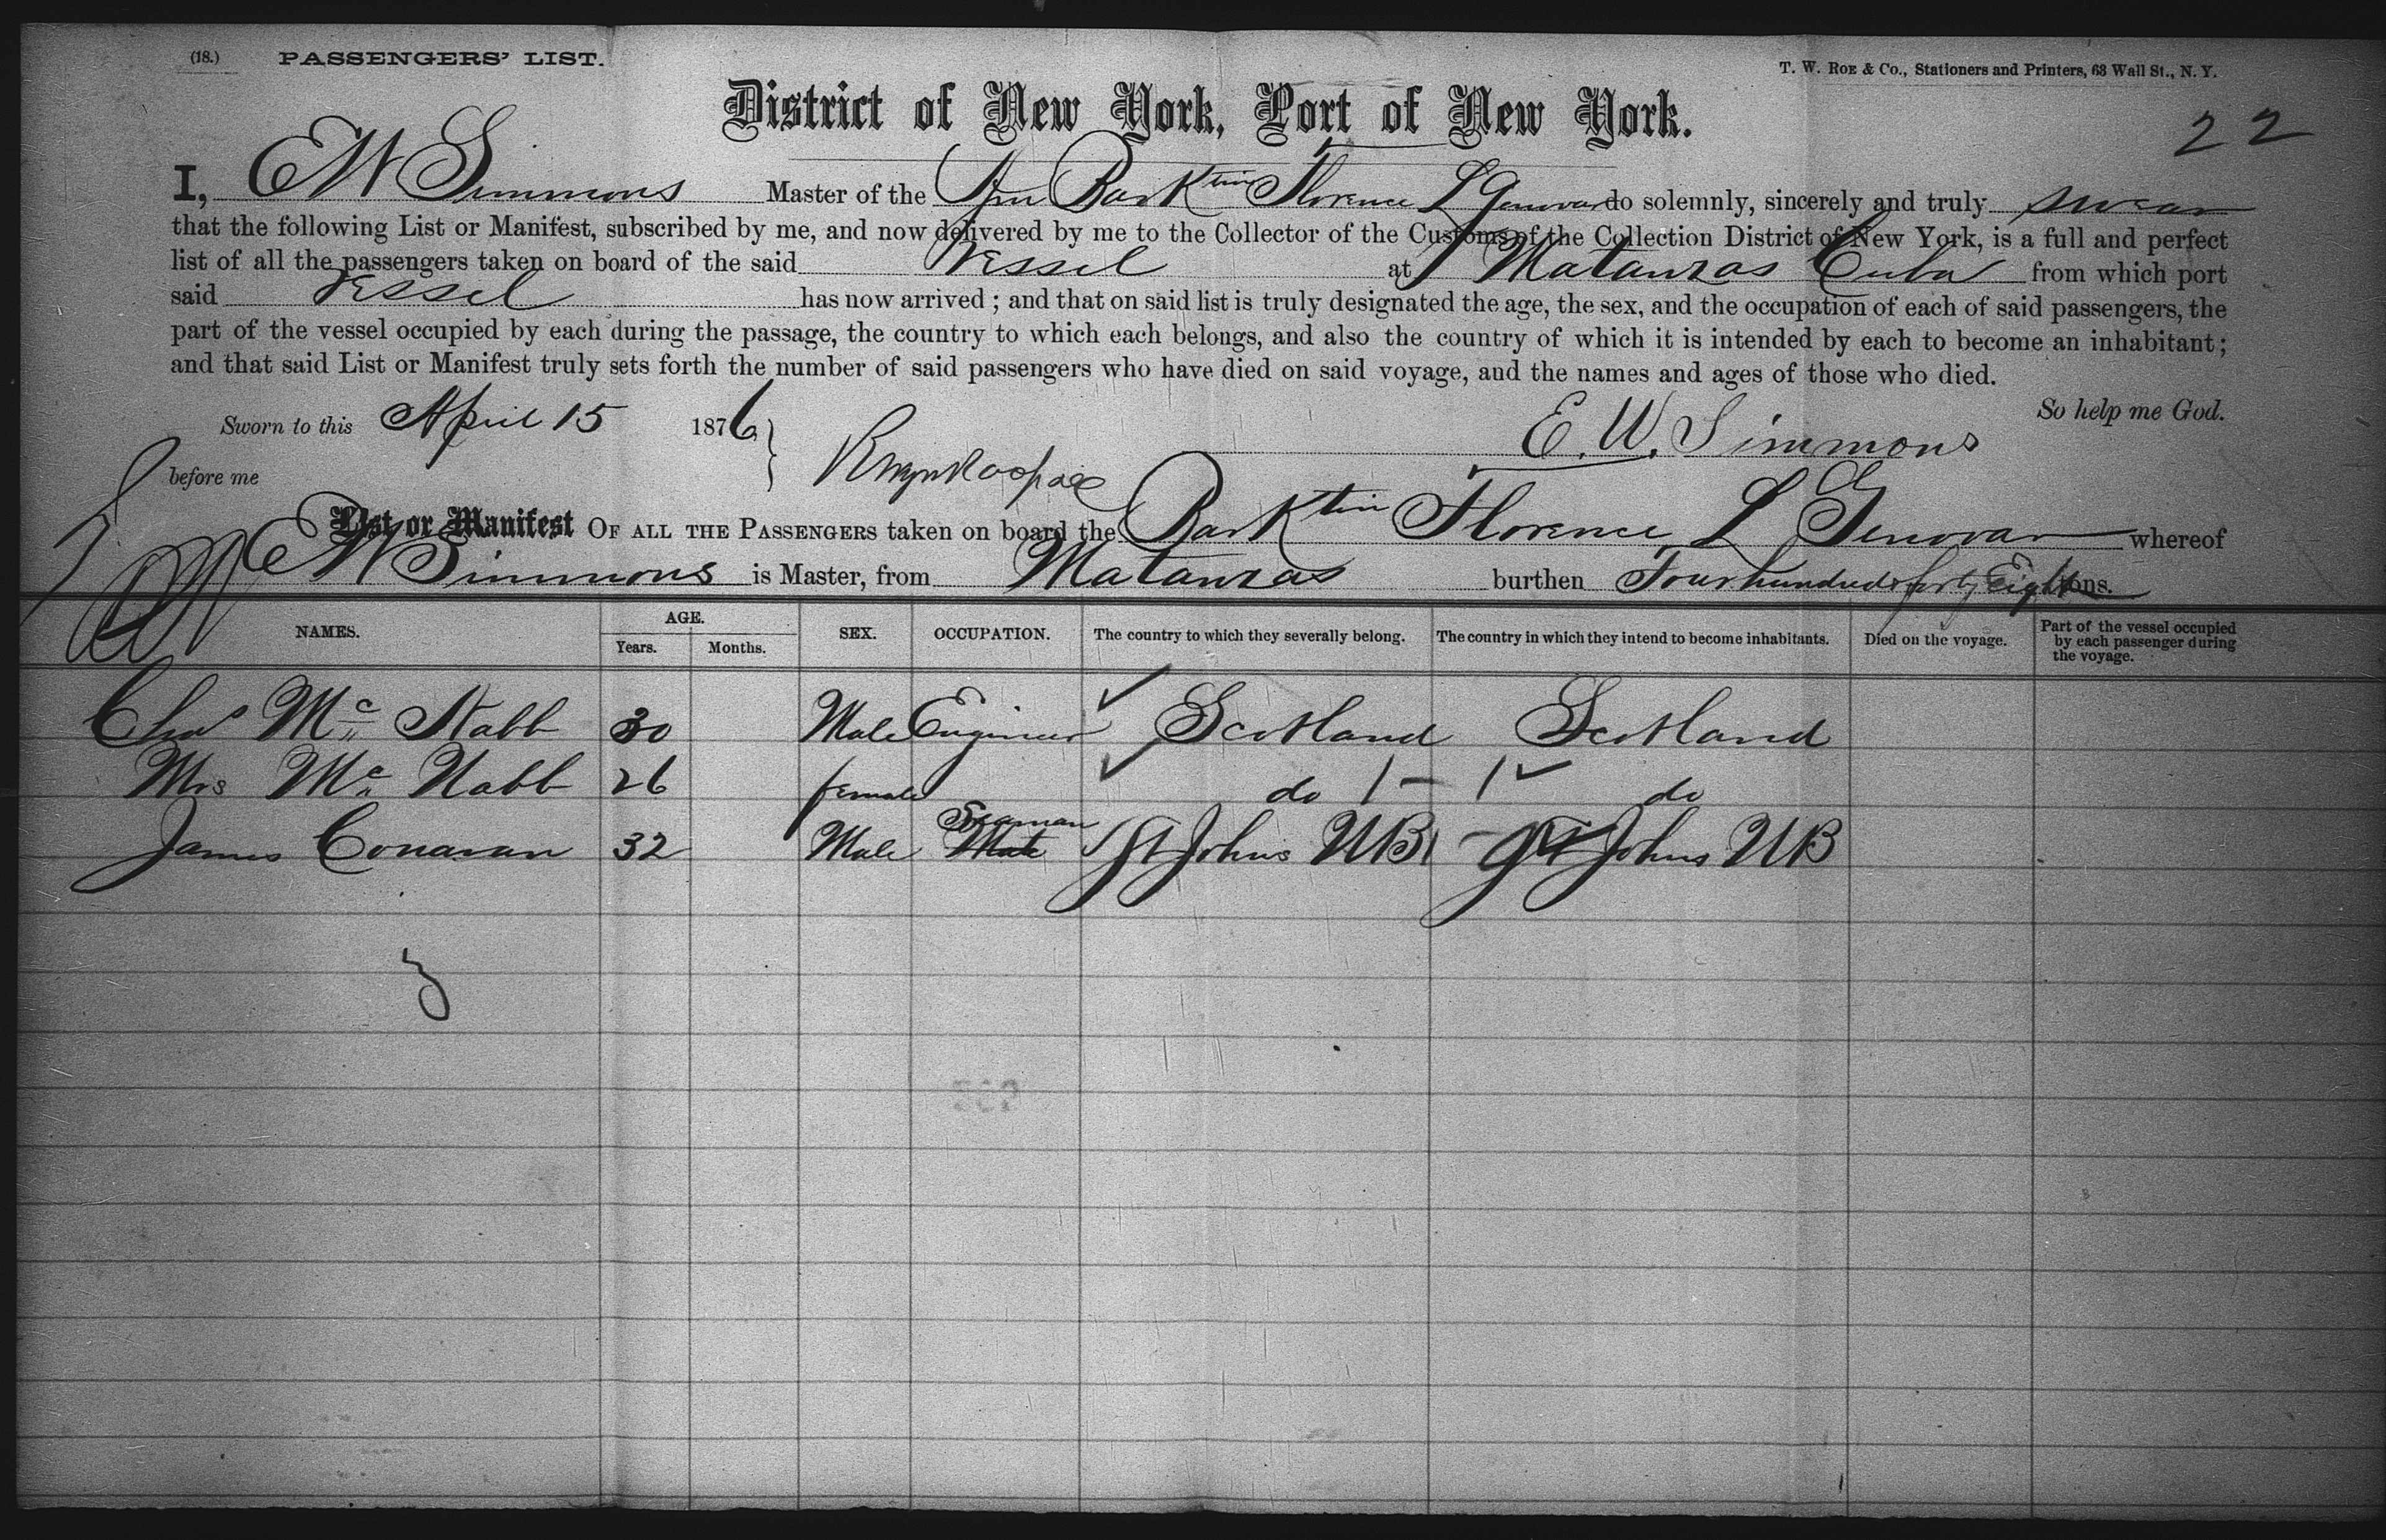 (18.) PASSENGERS' LIST.
T. W. ROE & CO., Stationers and Printers, 63 Wall St., N. Y.
District of New York, Port of New York.
22
I, E W Simmons Master of the Am Barktin Florence L Genovar do solemnly, sincerely and truly swear
that the following List or Manifest, subscribed by me, and now delivered by me to the Collector of the Customs of the Collection District of New York, is a full and perfect
list of all the passengers taken on board of the said Vessel at Matanzas Cuba from which port
said Vessel has now arrived; and that on said list is truly designated the age, the sex, and the occupation of each of said passengers, the
part of the vessel occupied by each during the passage, the country to which each belongs, and also the country of which it is intended by each to become an inhabitant;
and that said List or Manifest truly sets forth the number of said passengers who have died on said voyage, and the names and ages of those who died.
So help me God.
Sworn to this April 15 1876
E. W. Simmons
before me
List or Manifest OF ALL THE PASSENGERS taken on board the Barktin Florence L Genovar whereof
E W Simmons is Master, from Matanzas burthen Four hundred & forty Eight tons.
NAMES. AGE. Years. Months. SEX. OCCUPATION. The country to which they severally belong. The country in which they intend to become inhabitants. Died on the voyage. Part of the vessel occupied by each passenger during the voyage.
Chas Mc Nabb 30 Male Engineer Scotland Scotland
Mrs Mc Nabb 26 female do 1 - 1 do
James Conavan 32 Male Seaman Mate St Johns NB 1 - St Johns NB
3